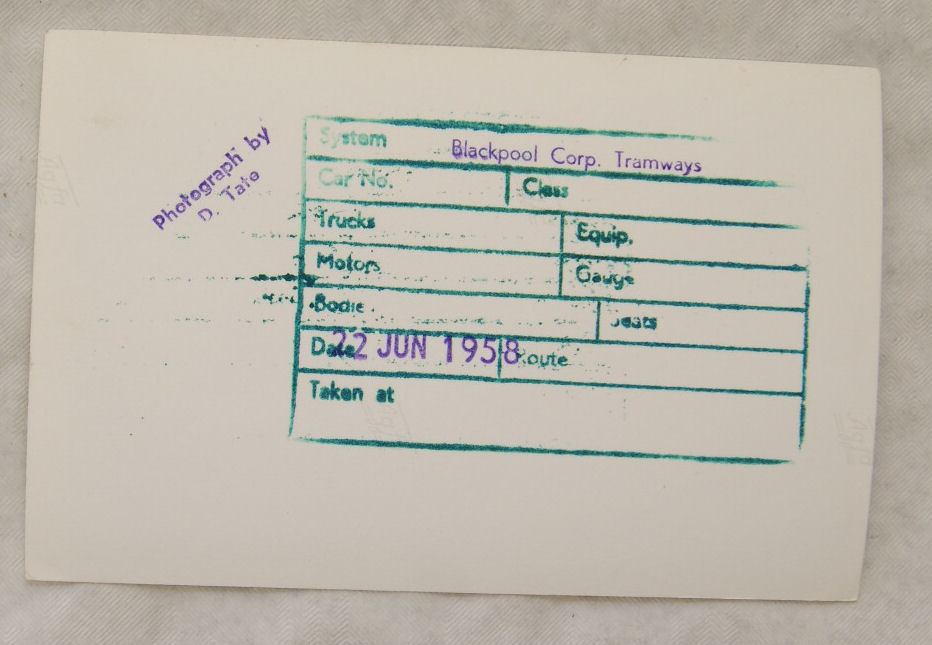 Photograph by
D. Tate
System Blackpool Corp. Tramways
Car No. Class
Trucks Equip.
Motors Gauge
Bodie Seats
Date 22 JUN 1958 Route
Taken at